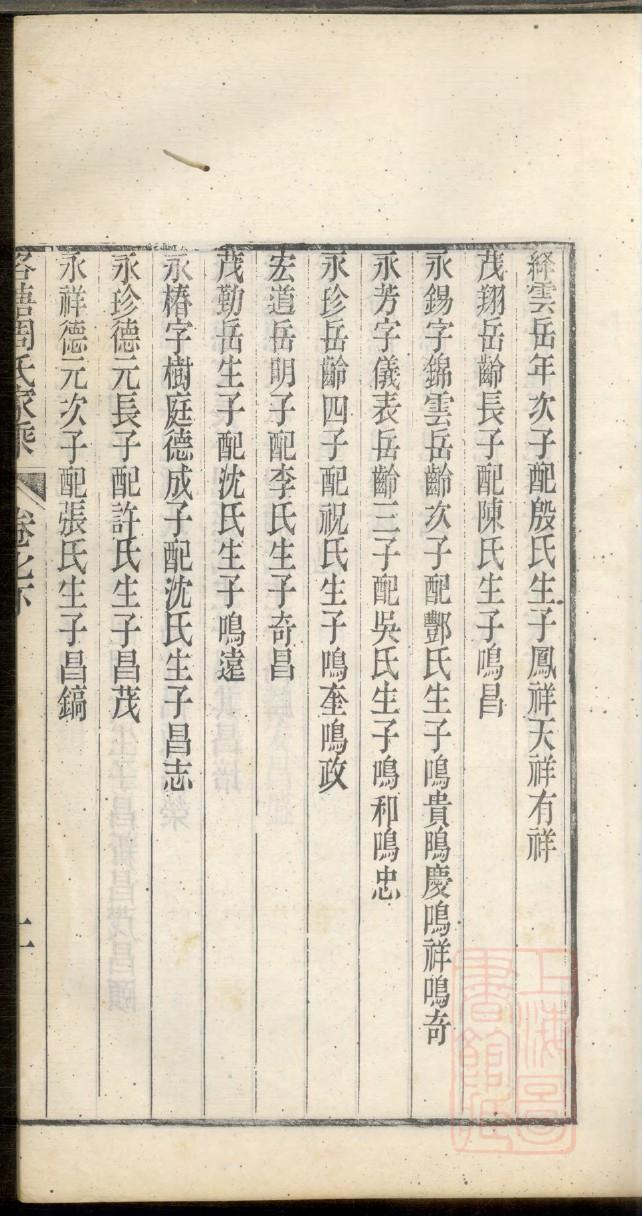 絳雲岳年次子配殷氏生子鳳祥天祥有祥
茂翔岳齡長子配陳氏生子鳴昌
永錫字錦雲岳齡次子配酆氏生子鳴貴鳴慶鳴祥鳴奇
永芳字儀表岳齡三子配吳氏生子鳴和鳴忠
永珍岳齡四子配祝氏生子鳴奎鳴政
宏道岳明子配李氏生子奇昌
茂勤岳生子配沈氏生子鳴遠
永椿字樹庭德成子配沈氏生子昌志
永珍德元長子配許氏生子昌茂
永祥德元次子配張氏生子昌鎬
周氏家乘 卷之下
上海圖書館藏